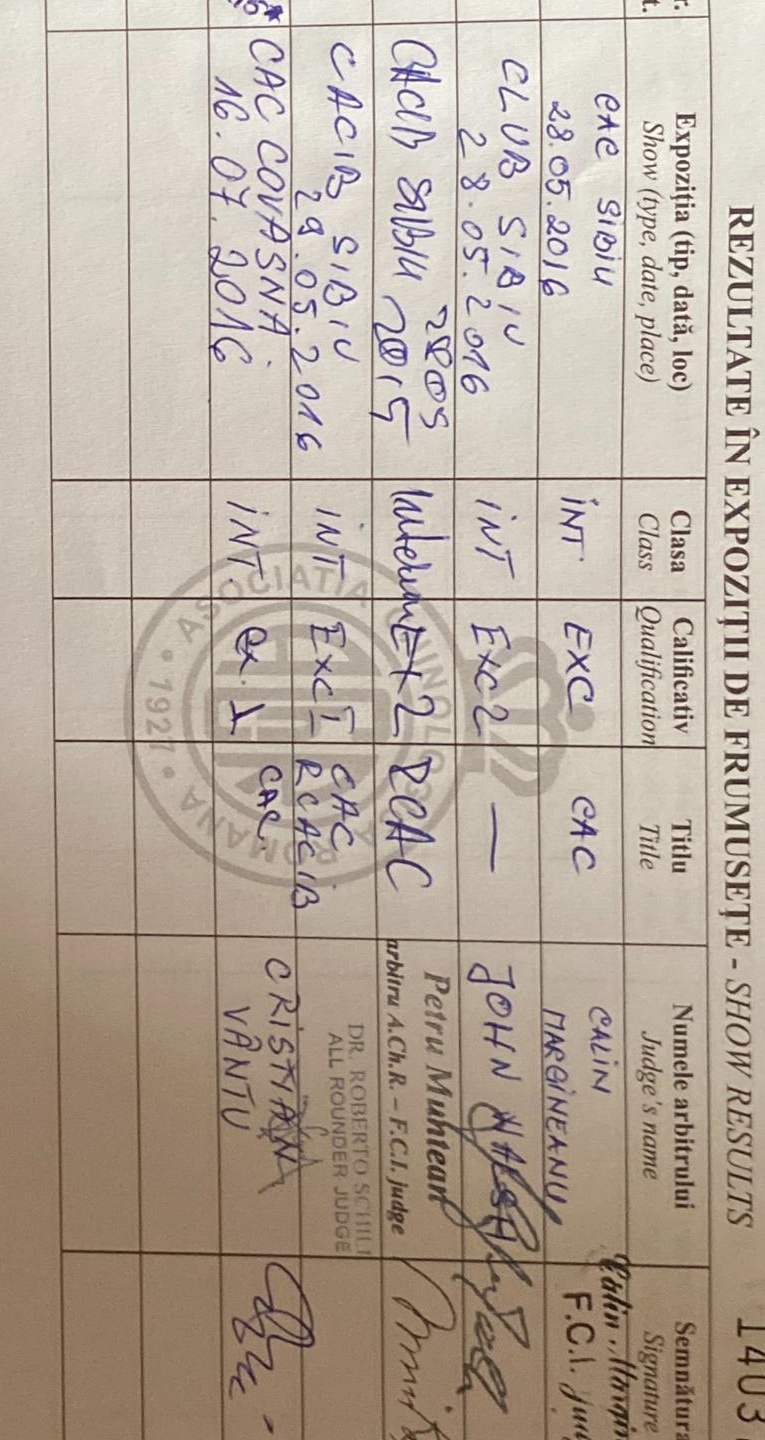 1403
REZULTATE ÎN EXPOZIȚII DE FRUMUSEȚE - SHOW RESULTS
r. Expoziția (tip, dată, loc) Clasa Calificativ Titlu Numele arbitrului Semnătura
t. Show (type, date, place) Class Qualification Title Judge's name Signature
CAC SIBIU
28.05.2016
INT EXC CAC
CALIN
MARGINEANU
F.C.I.
CLUB SIBIU
28.05.2016
INT EXC 2 —
JOHN
CACIB SIBIU
2015
EX 2 RCAC
Petru Muntean
arbitru A.Ch.R. – F.C.I. judge
CACIB SIBIU
29.05.2016
INT EXC I CAC
RCACIB
DR. ROBERTO SCHILL
ALL ROUNDER JUDGE
CAC COVASNA.
16.07.2016
INT. ex. 1 CAC.
CRISTIAN
VÂNTU
ASOCIATIA CHINOLOGICA ROMANA • 1927 •